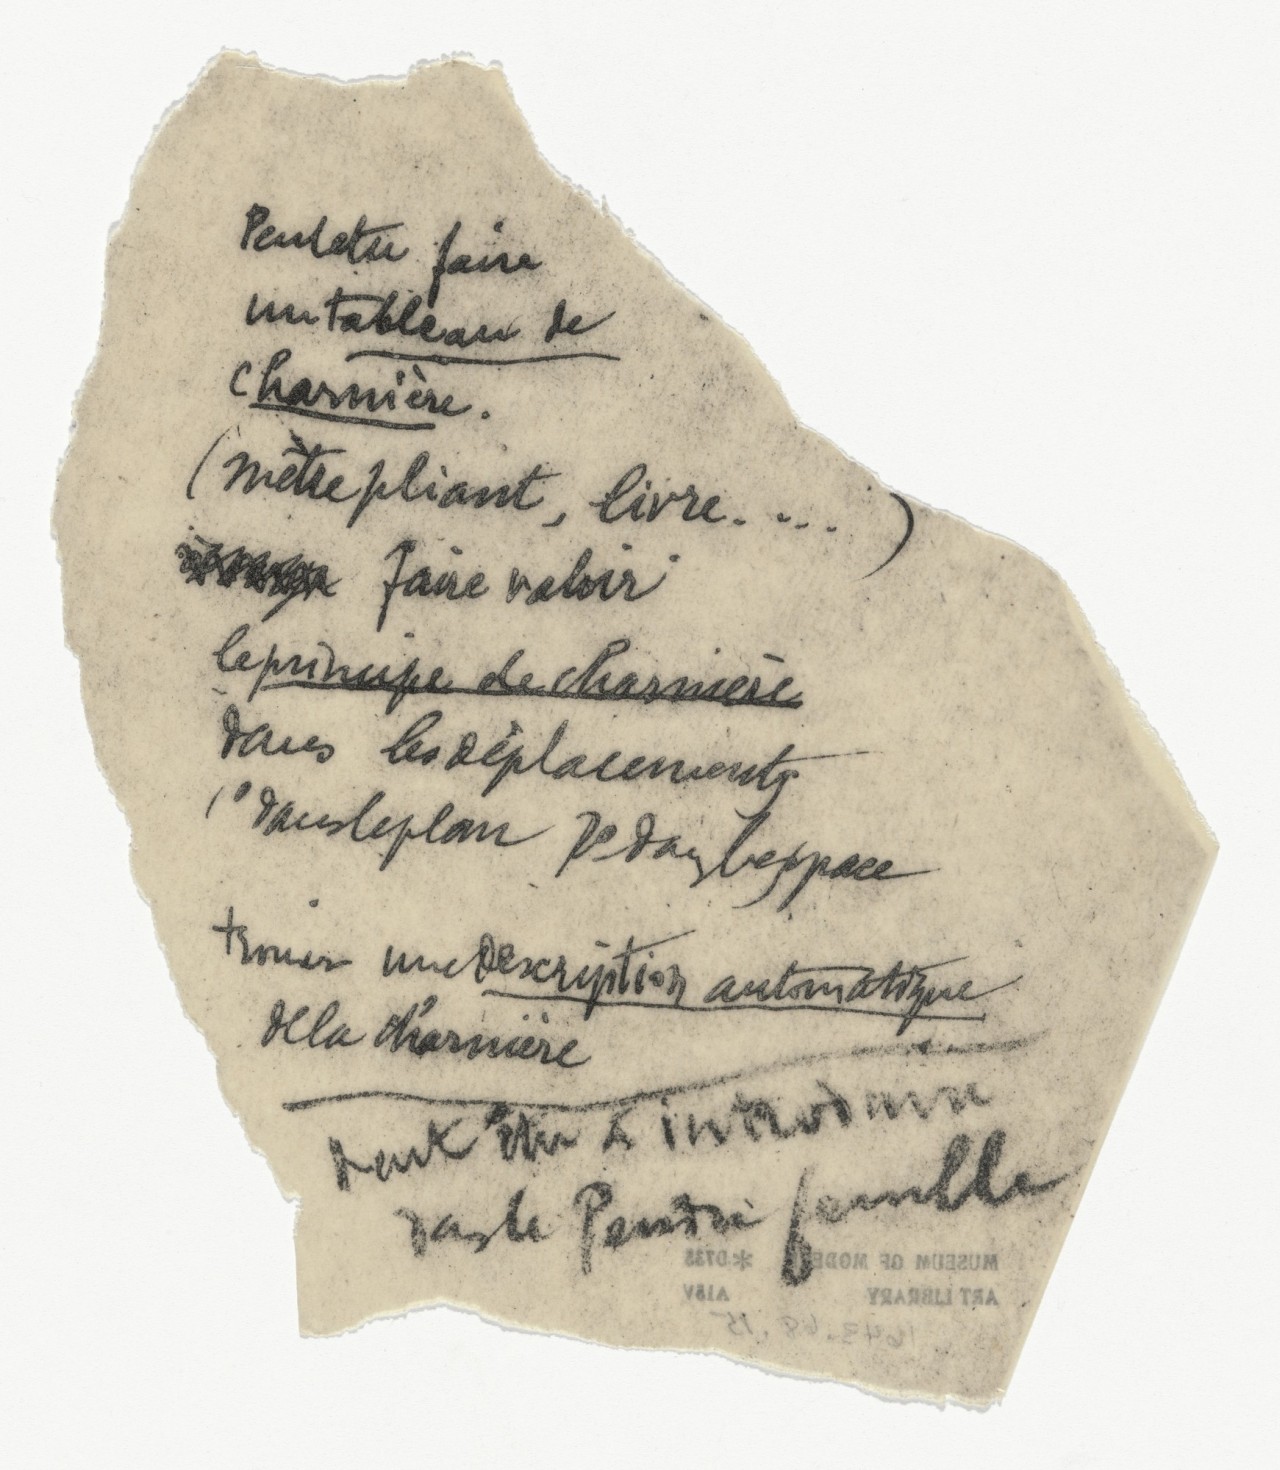 Peut etre faire
un tableau de
charnière.
(mètre pliant, livre.....)
faire valoir
le principe de charnière
dans les déplacements
1° dans le plan 2° dans l'espace
trouver une description automatique
de la charnière
Peut être à introduire
dans le Pendu femelle
MUSEUM OF MODERN *D735
ART LIBRARY A15V
1643.68.15